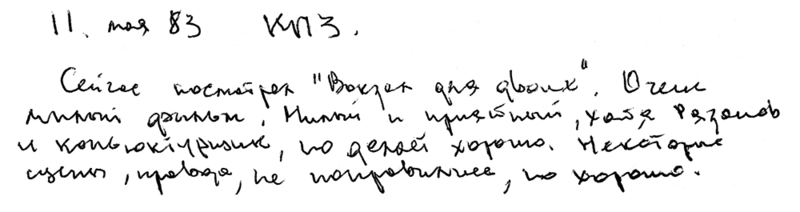 11. мая 83 КПЗ.
Сейчас посмотрел "Вокзал для двоих". Очень
милый фильм. Милый и приятный, хотя Рязанов
и коньюктурщик, но делает хорошо. Некоторые
сцены, правда, не понравились, но хорошо.